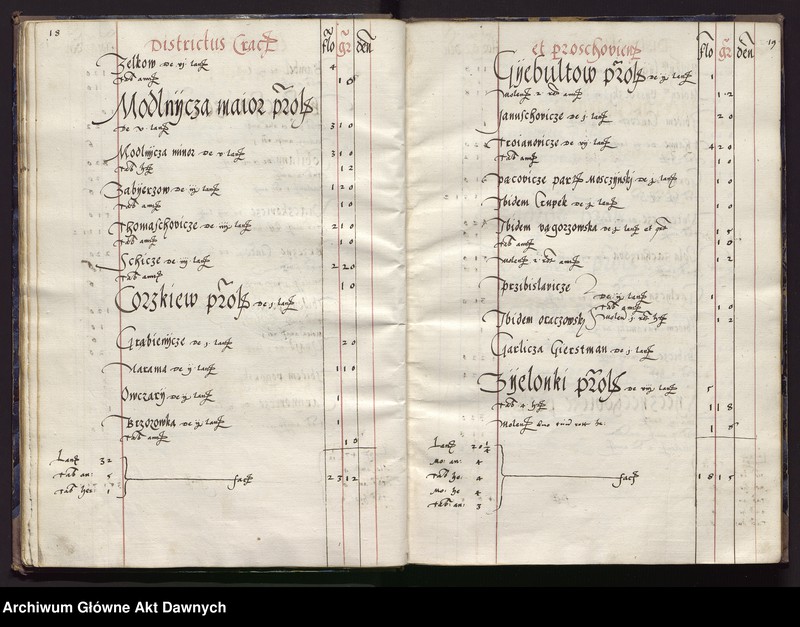 18
Districtus Crac
flo gr den
Zelkow de vj lan
4
Tab ami
10
Modlnÿcza maior p̃rol
de v lan
3 10
Modlnÿcza minor de v lan
3 10
Tab he
12
Zabÿerzow de iij lan
1 20
Tab ami
10
Thomaschovicze de iiij lan
2 10
Tab ami
10
Schicze de iiij lan
2 20
Tab ami
10
Corzkiew p̃rol de j lan
Grabienÿcze de j lan
20
Narama de ij lan
1 10
Owczarÿ de
1
Brzozowka de
1
Tab ami
10
Lan 32
Tab an: 5
Tab he: 1
fac
2 3 12
19
et proschovien
flo gr den
Gÿebultow p̃rol de lan
1
Molen 2 ami
12
Januschovicze de j lan
20
Troianovicze de vij lan
4 20
Tab ami
10
pacovicze par Mosczÿnskj de lan
10
Ibidem Czupek de lan
10
Ibidem vagorzowska de lan et
15
Tab ami
10
Molen 2 ami
12
Przibislavicze
de ij lan
1
Tab ami
10
Ibidem oraczowskÿ Molen j he
12
Garlicza Gierstman de j lan
Zÿelonki p̃rol de viij lan
5
Tab 4 he
1 18
Molen duo he:
1
Lan 20 1/4
Mo: an: 4
Tab he: 4
Mo: he 4
Tab: an: 3
fac
1 8 15
Archiwum Główne Akt Dawnych